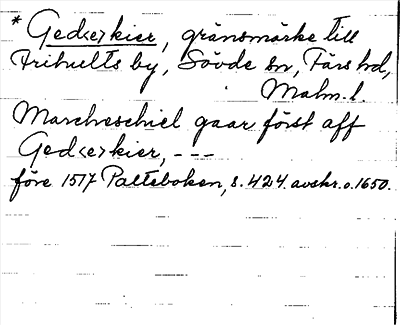 * Ged<e>kier, gränsmärke till
Arihults by, Sövde sn, Färs hd,
Malm. l.
Marcheschiel gaar först aff
Ged<e>kier, ---
före 1517 Palteboken, s. 424. avskr. o. 1650.